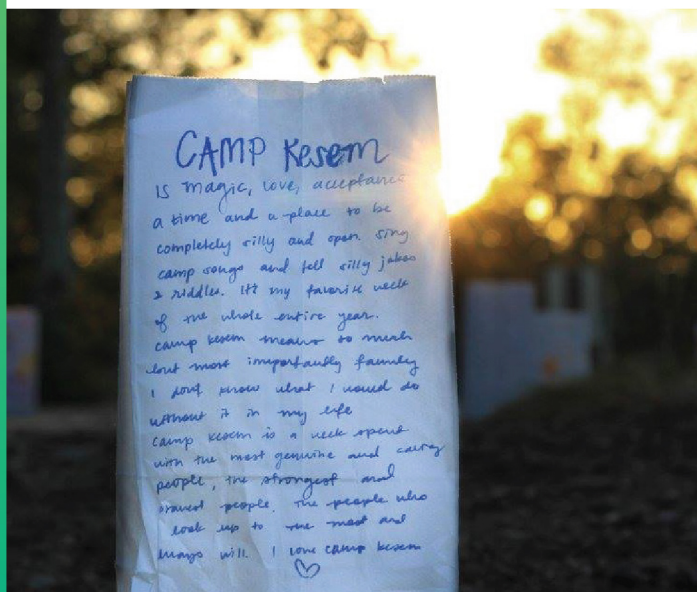 CAMP Kesem
is magic, love, acceptance
a time and a place to be
completely silly and open. sing
camp songs and tell silly jokes
& riddles. It's my favorite week
of the whole entire year.
camp kesem means so much
but most importantly family
I don't know what I would do
without it in my life
camp kesem is a week spent
with the most genuine and caring
people, the strongest and
bravest people. The people who
look up to the most and
always will. I love camp kesem